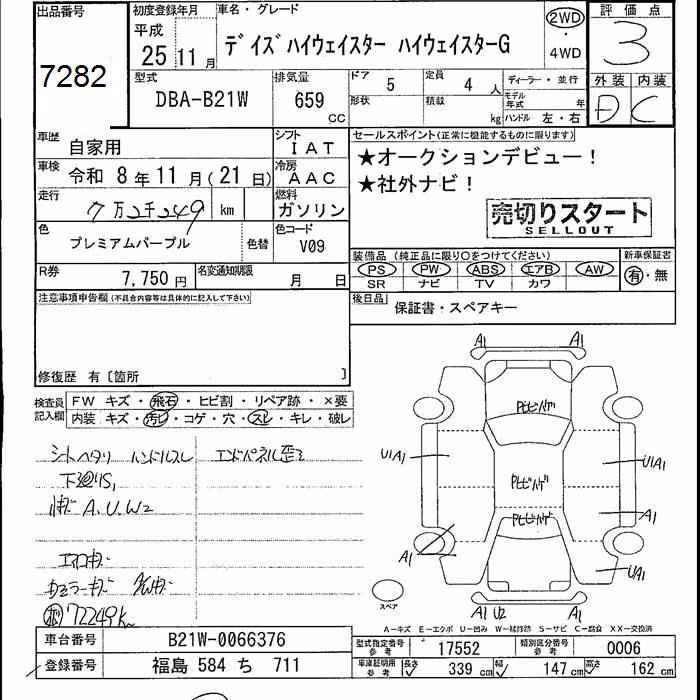 出品番号
7282
初度登録年月
平成
25年11月
車名・グレード
デイズハイウェイスター ハイウェイスターG
2WD
・
4WD
評価点
3
外装 内装
D C
型式
DBA-B21W
排気量
659
CC
ドア 5
定員 4 人
形状
積載 kg
ディーラー・並行
モデル年式 年
ハンドル 左・右
車歴
自家用
シフト
IAT
車検
令和 8年11月(21日)
冷房
AAC
走行
7万2千249 km
燃料
ガソリン
色
プレミアムパープル
色替
色コード
V09
R券
7,750円
名変通知期限
月 日
セールスポイント(正常に機能するものに限ります)
★オークションデビュー!
★社外ナビ!
売切りスタート
SELLOUT
装備品 (純正品に限り○をつけてください)
PS PW ABS エアB AW
SR ナビ TV カワ
新車保証書
有・無
後日品
保証書・スペアキー
注意事項申告欄(不具合内容等は具体的に記入して下さい)
修復歴 有〔箇所 〕
検査員記入欄
FW キズ・飛石・ヒビ割・リペア跡・×要
内装 キズ・汚レ・コゲ・穴・スレ・キレ・破レ
シートヘタリ ハンドルスレ エンドパネル歪ミ
下廻りS,
A.U.W2
エアロキズ
カメラーキズ
72249k
A1 A1
U1A1
U1A1
A1
A1
UA1
A1 U2 A1
スペア
A—キズ E—エクボ U—凹み W—補修跡 S—サビ C—腐食 XX—交換済
車台番号
B21W-0066376
登録番号
福島 584 ち 711
型式指定番号
参考
17552
類別区分番号
参考
0006
車庫証明用
参考
長さ 339 cm
幅 147 cm
高さ 162 cm